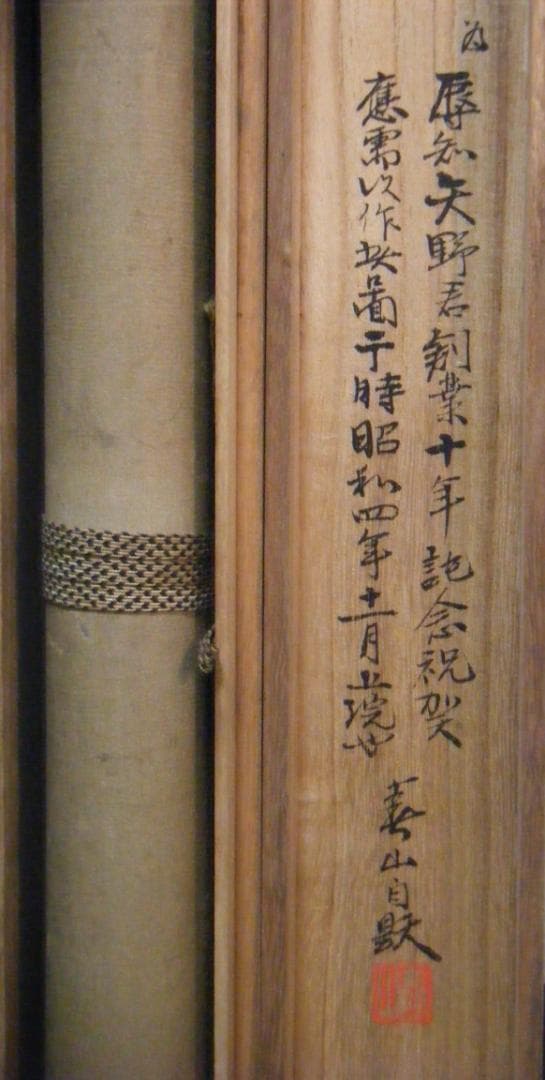 為
辱知矢野君創業十年記念祝賀
應需以作此圖于時昭和四年十一月上浣也
山自題